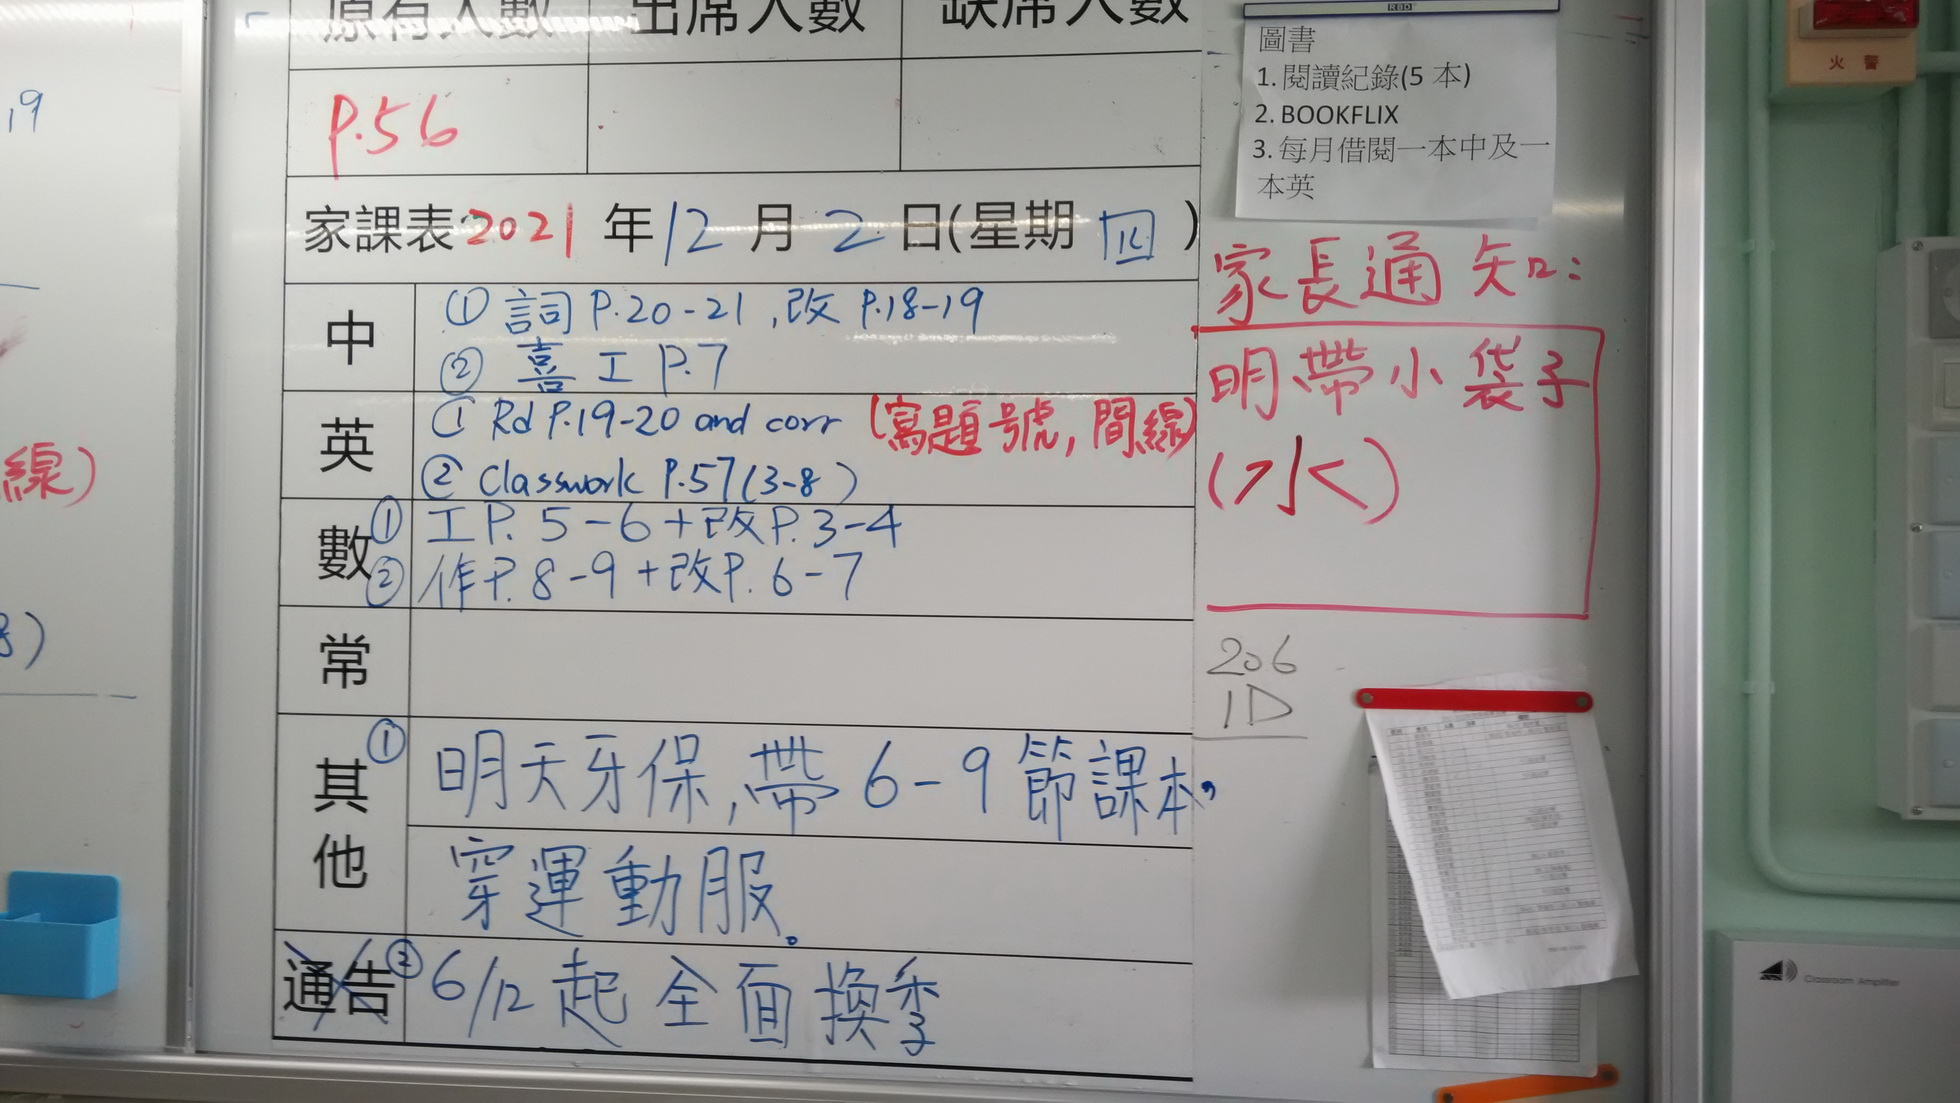 原有人數 出席人數 缺席人數
P.56
家課表:2021 年 12 月 2 日(星期 四 )
中
① 詞 P.20-21 , 改 P.18-19
② 喜 工 P.7
英
① Rd P.19-20 and corr (寫題號, 間線)
② Classwork P.57 (3-8)
數
① 工 P. 5-6 + 改 P. 3-4
② 作 P. 8-9 + 改 P. 6-7
常
其他
① 明天牙保, 帶 6-9 節課本,
穿運動服。
通告
② 6/12 起 全面換季
RBD
圖書
1. 閱讀紀錄(5 本)
2. BOOKFLIX
3. 每月借閱一本中及一
本英
家長通知:
明帶小袋子
(水)
206
1D
,19
線)
8)
火警
Classroom Amplifier